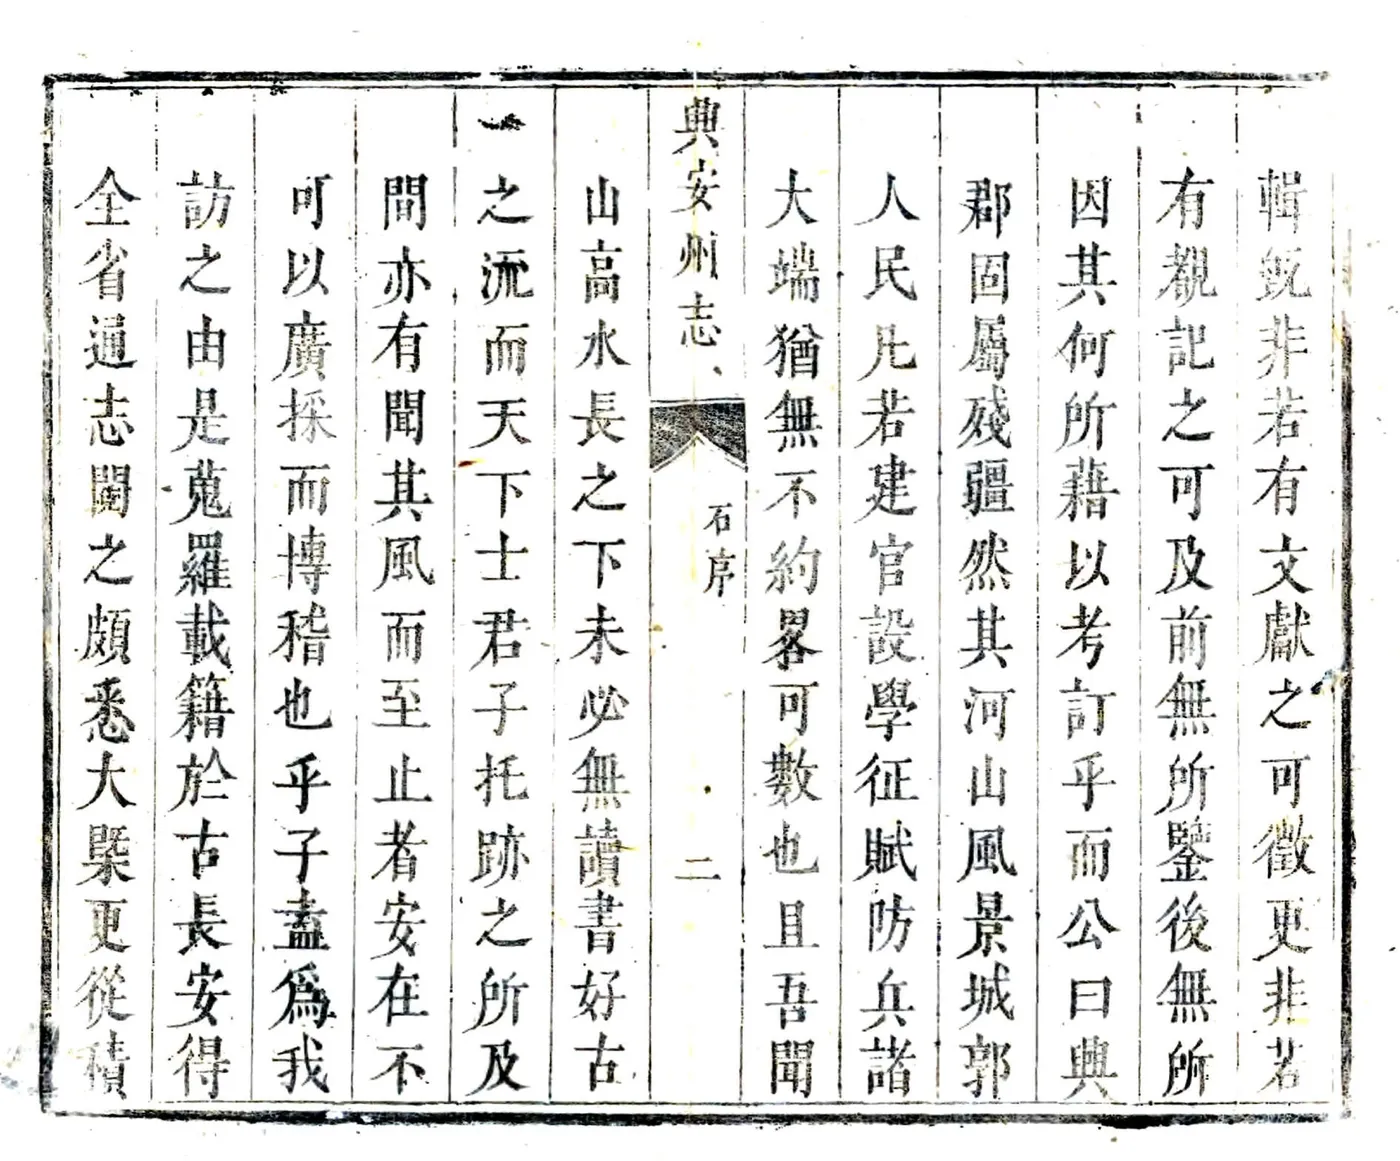 輯既非若有文獻之可徵更非若
有覩記之可及前無所鑒後無所
因其何所藉以考訂乎而公曰興
郡固屬殘疆然其河山風景城郭
人民凡若建官設學征賦防兵諸
大端猶無不約畧可數也且吾聞
興安州志
石序
二
山高水長之下未必無讀書好古
之流而天下士君子托跡之所及
間亦有聞其風而至止者安在不
可以廣採而博稽也乎子盍爲我
訪之由是蒐羅載籍於古長安得
全省通志閱之頗悉大槩更從積